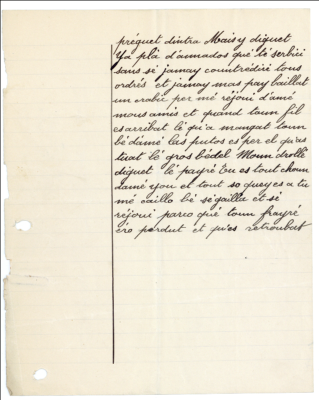 préguet dintra Maïsy diguet
Ya pla d'annados qué té serbici
sans sé jamay countredire tous
ordrés et jamay m'as pay baillat
un crabic per mé réjoui d'amé
mous amis et quand toun fil
es arribat lé qu'a mangat toun
bé d'amé las putos es per el qu'as
tuat lé gros bédel Moun drollé
diguet lé payré tu es tout choun
damé you et tout so quey es a tu
mé caillo bé sé gailla et sé
réjoui parco qué toun frayré
éro perdut et qu'es retroubat